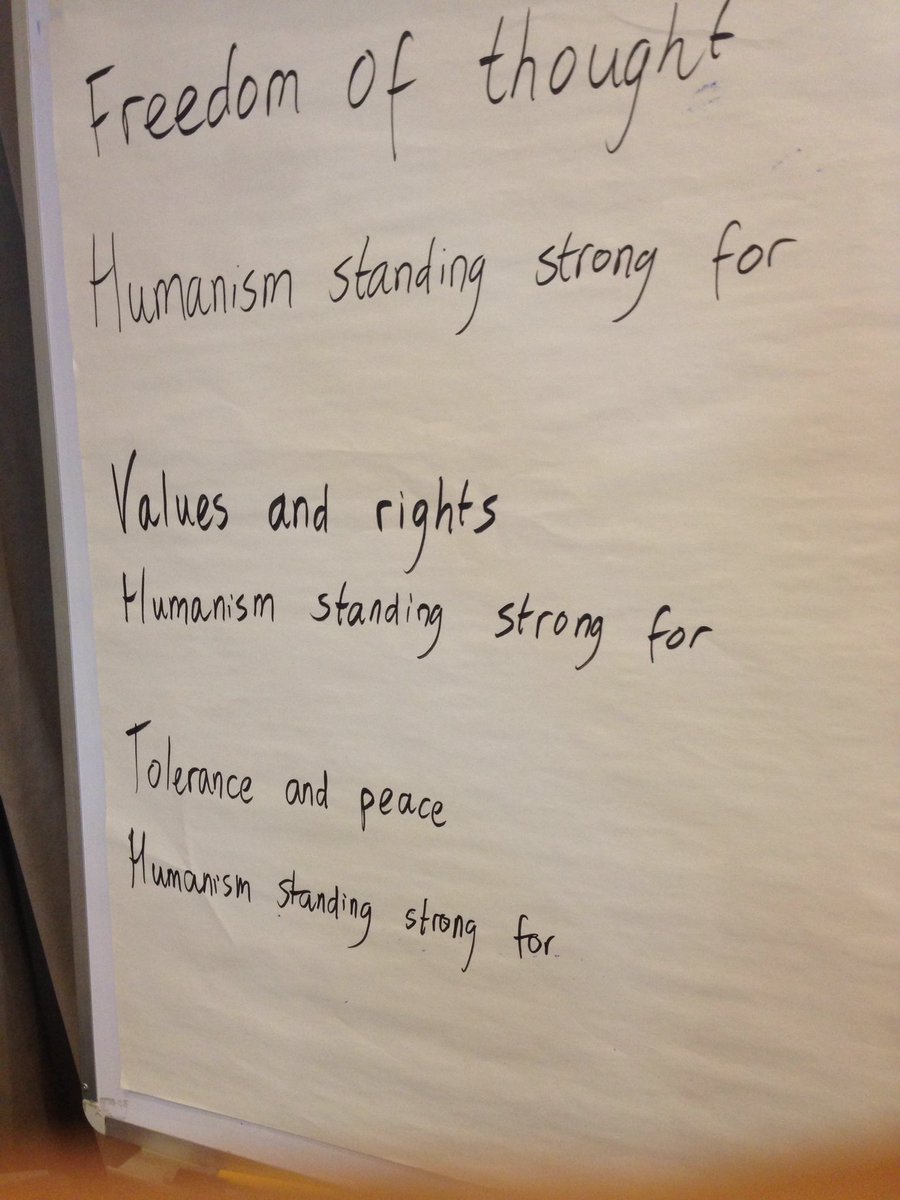 Freedom of thought
Humanism standing strong for
Values and rights
Humanism standing strong for
Tolerance and peace
Humanism standing strong for